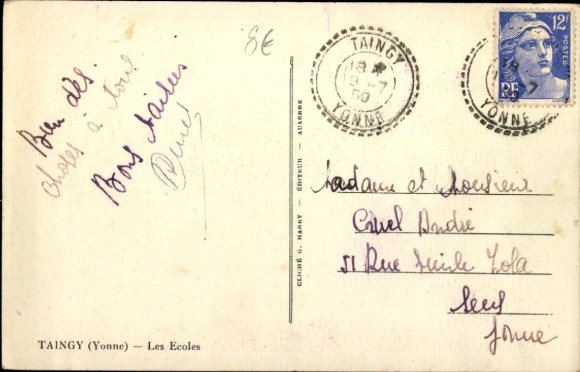 8€
12F
POSTES
RF
TAINGY
18
9-7
50
YONNE
Bien des
choses à tous
Bons baisers
Madame et Monsieur
André
51 Rue Emile Zola
Sens
Yonne
CLICHÉ G. HARRY — ÉDITEUR — AUXERRE
TAINGY (Yonne) — Les Ecoles